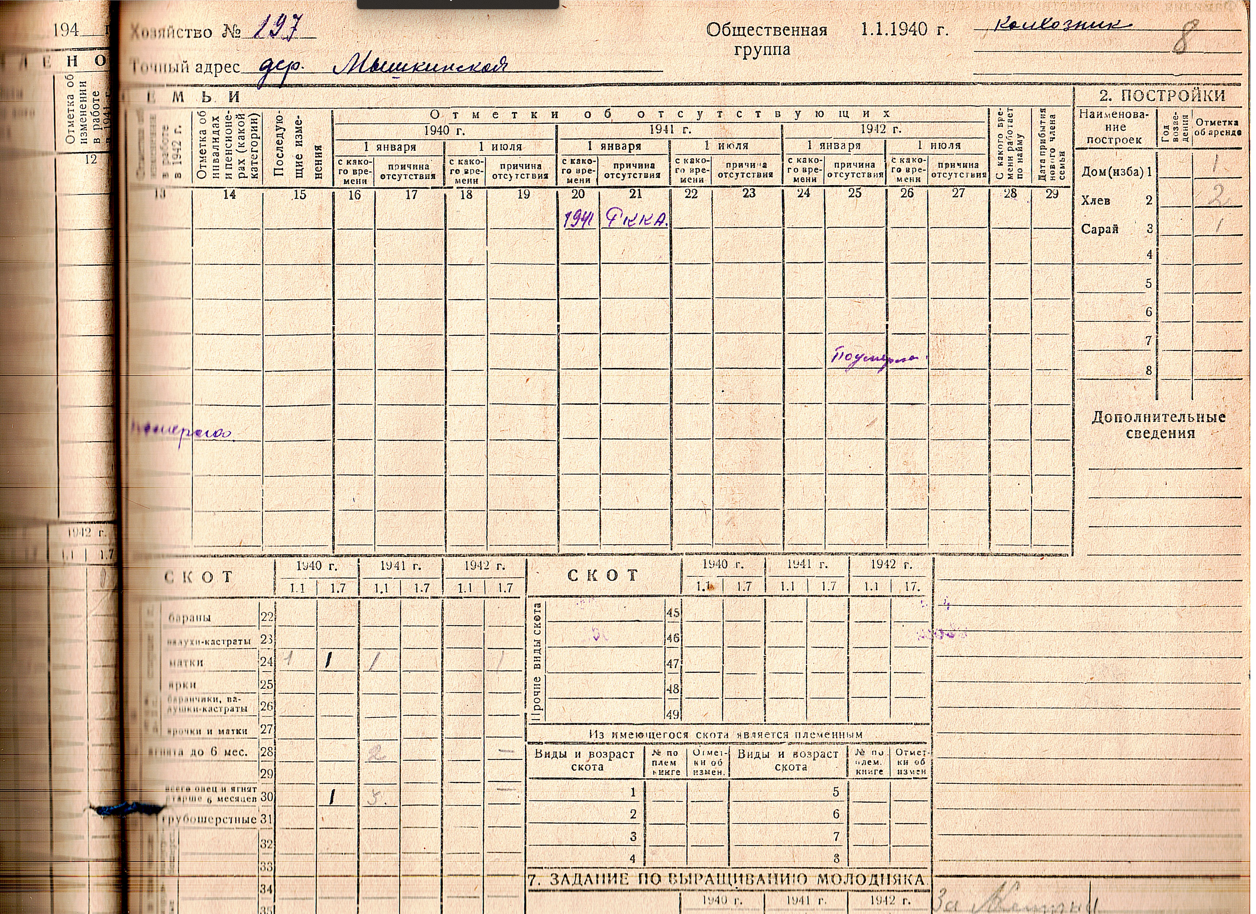 194
Хозяйство № 197
Общественная группа 1.1.1940 г. колхозник 8
Точный адрес дер. Мышкинская
ЛЕНО
СЕМЬИ
Отметка об изменении в работе в 1941 г.
12
в работе в 1942 г.
Отметка об инвалидах и пенсионерах (какой категории)
Последующие изменения
Отметки об отсутствующих
1940 г. 1941 г. 1942 г.
1 января 1 июля 1 января 1 июля 1 января 1 июля
с какого времени причина отсутствия с какого времени причина отсутствия с какого времени причина отсутствия с какого времени причина отсутствия с какого времени причина отсутствия с какого времени причина отсутствия
С какого времени работает по найму
Дата прибытия нового члена семьи
13 14 15 16 17 18 19 20 21 22 23 24 25 26 27 28 29
1941 РККА.
2. ПОСТРОЙКИ
Наименование построек
Год возведения
Отметка об аренде
Дом(изба) 1 1
Хлев 2 2
Сарай 3 1
4
5
6
7
8
Дополнительные сведения
1942 г.
1.1 1.7
СКОТ
1940 г. 1941 г. 1942 г.
1.1 1.7 1.1 1.7 1.1 1.7
бараны 22
валухи-кастраты 23
матки 24 1 1 1 1
ярки 25
баранчики, валушки-кастраты 26
ярочки и матки 27
ягнята до 6 мес. 28 2 —
29
всего овец и ягнят старше 6 месяцев 30 1 3. —
грубошерстные 31
32
33
34
35
СКОТ
1940 г. 1941 г. 1942 г.
1.1 1.7 1.1 1.7 1.1 17.
Прочие виды скота
45
46
47
48
49
Из имеющегося скота является племенным
Виды и возраст скота № по плем книге Отметки об измен. Виды и возраст скота № по плем. книге Отметки об измен
1 5
2 6
3 7
4 8
7. ЗАДАНИЕ ПО ВЫРАЩИВАНИЮ МОЛОДНЯКА
1940 г. 1941 г. 1942 г.
За